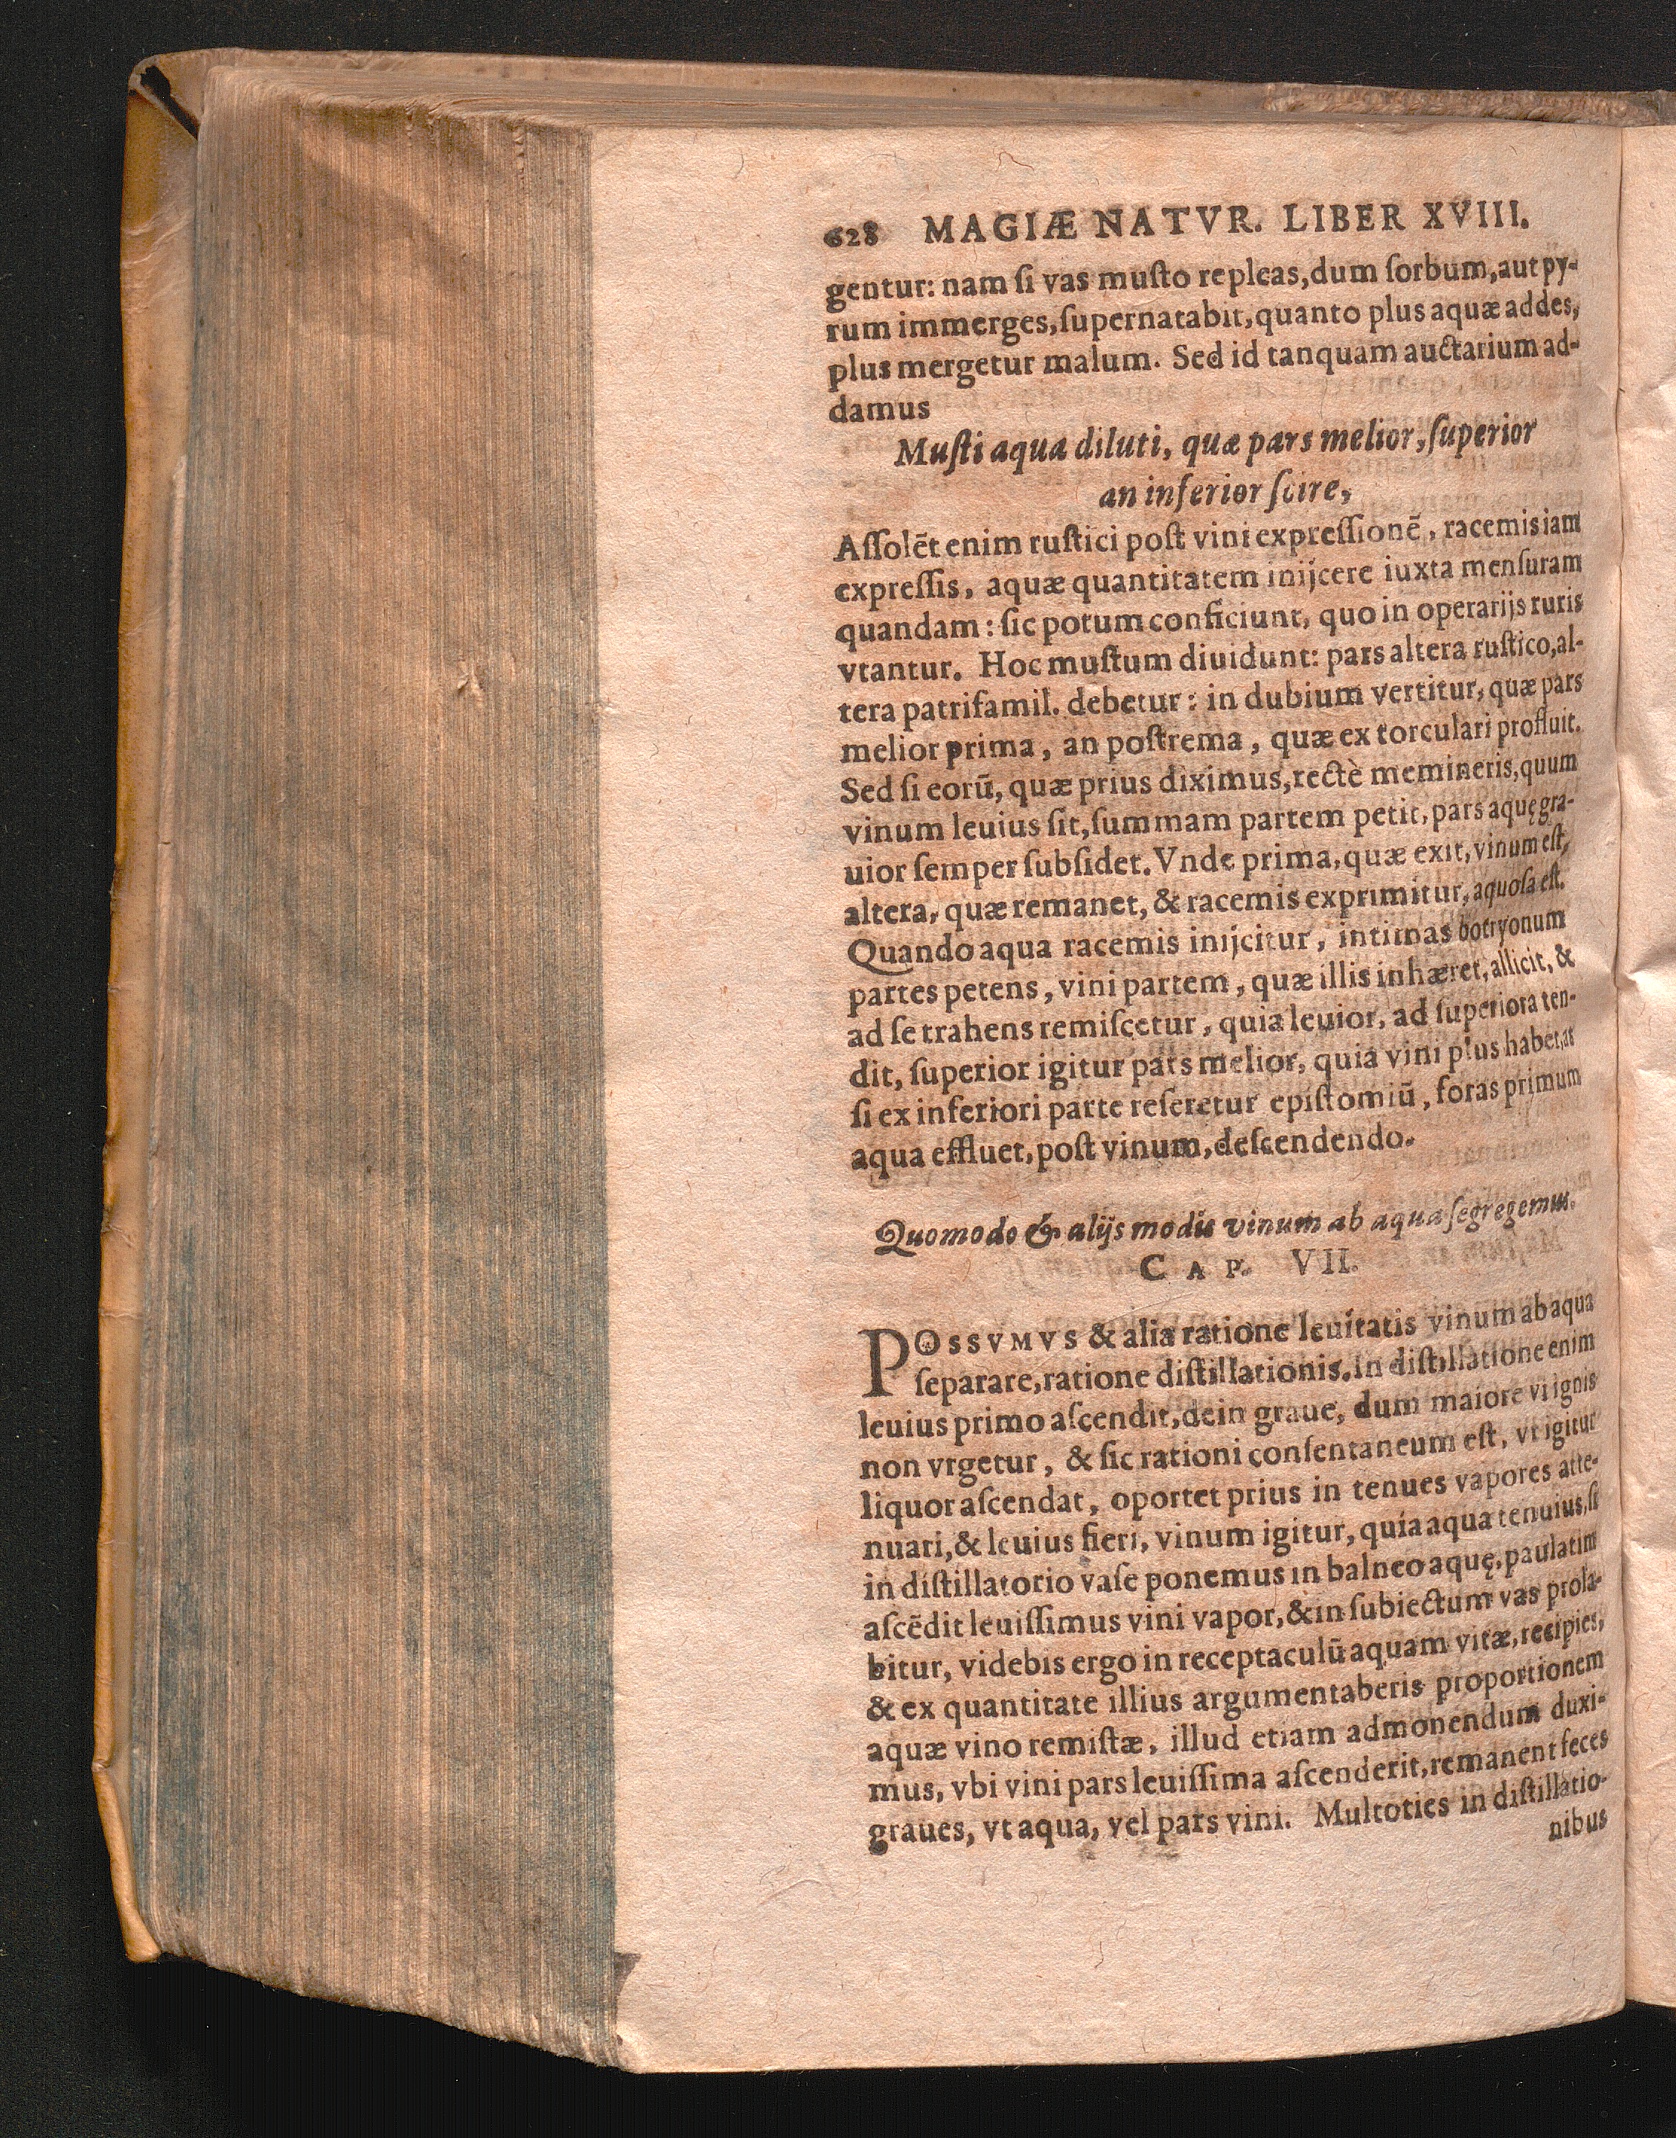 628 MAGIÆ NATVR. LIBER XVIII.
gentur: nam ſi vas muſto repleas, dum ſorbum, aut py-
rum immerges, ſupernatabit, quanto plus aquæ addes,
plus mergetur malum. Sed id tanquam auctarium ad-
damus
Muſti aqua diluti, quæ pars melior, ſuperior
an inferior ſcire,
Aſſolēt enim ruſtici poſt vini expreſſionē, racemis iam
expreſſis, aquæ quantitatem inijcere iuxta menſuram
quandam: ſic potum conficiunt, quo in operarijs ruris
vtantur. Hoc muſtum diuidunt: pars altera ruſtico, al-
tera patrifamil. debetur: in dubium vertitur, quæ pars
melior prima, an poſtrema, quæ ex torculari profluit.
Sed ſi eorū, quæ prius diximus, rectè memineris, quum
vinum leuius ſit, ſummam partem petit, pars aquę gra-
uior ſemper ſubſidet. Vnde prima, quæ exit, vinum eſt,
altera, quæ remanet, & racemis exprimitur, aquoſa eſt.
Quando aqua racemis inijcitur, intimas botryonum
partes petens, vini partem, quæ illis inhæret, allicit, &
ad ſe trahens remiſcetur, quia leuior, ad ſuperiora ten-
dit, ſuperior igitur pars melior, quia vini plus habet, at
ſi ex inferiori parte reſeretur epiſtomiū, foras primum
aqua effluet, poſt vinum, deſcendendo.
Quomodo & alijs modis vinum ab aqua ſegregemus.
CAP. VII.
POSSVMVS & alia ratione leuitatis vinum ab aqua
ſeparare, ratione diſtillationis. In diſtillatione enim
leuius primo aſcendit, dein graue, dum maiore vi ignis
non vrgetur, & ſic rationi conſentaneum eſt, vt igitur
liquor aſcendat, oportet prius in tenues vapores atte-
nuari, & leuius fieri, vinum igitur, quia aqua tenuius, ſi
in diſtillatorio vaſe ponemus in balneo aquę, paulatim
aſcēdit leuiſſimus vini vapor, & in ſubiectum vas prola-
bitur, videbis ergo in receptaculū aquam vitæ, recipies,
& ex quantitate illius argumentaberis proportionem
aquæ vino remiſtæ, illud etiam admonendum duxi-
mus, vbi vini pars leuiſſima aſcenderit, remanent feces
graues, vt aqua, vel pars vini. Multoties in diſtillatio-
nibus